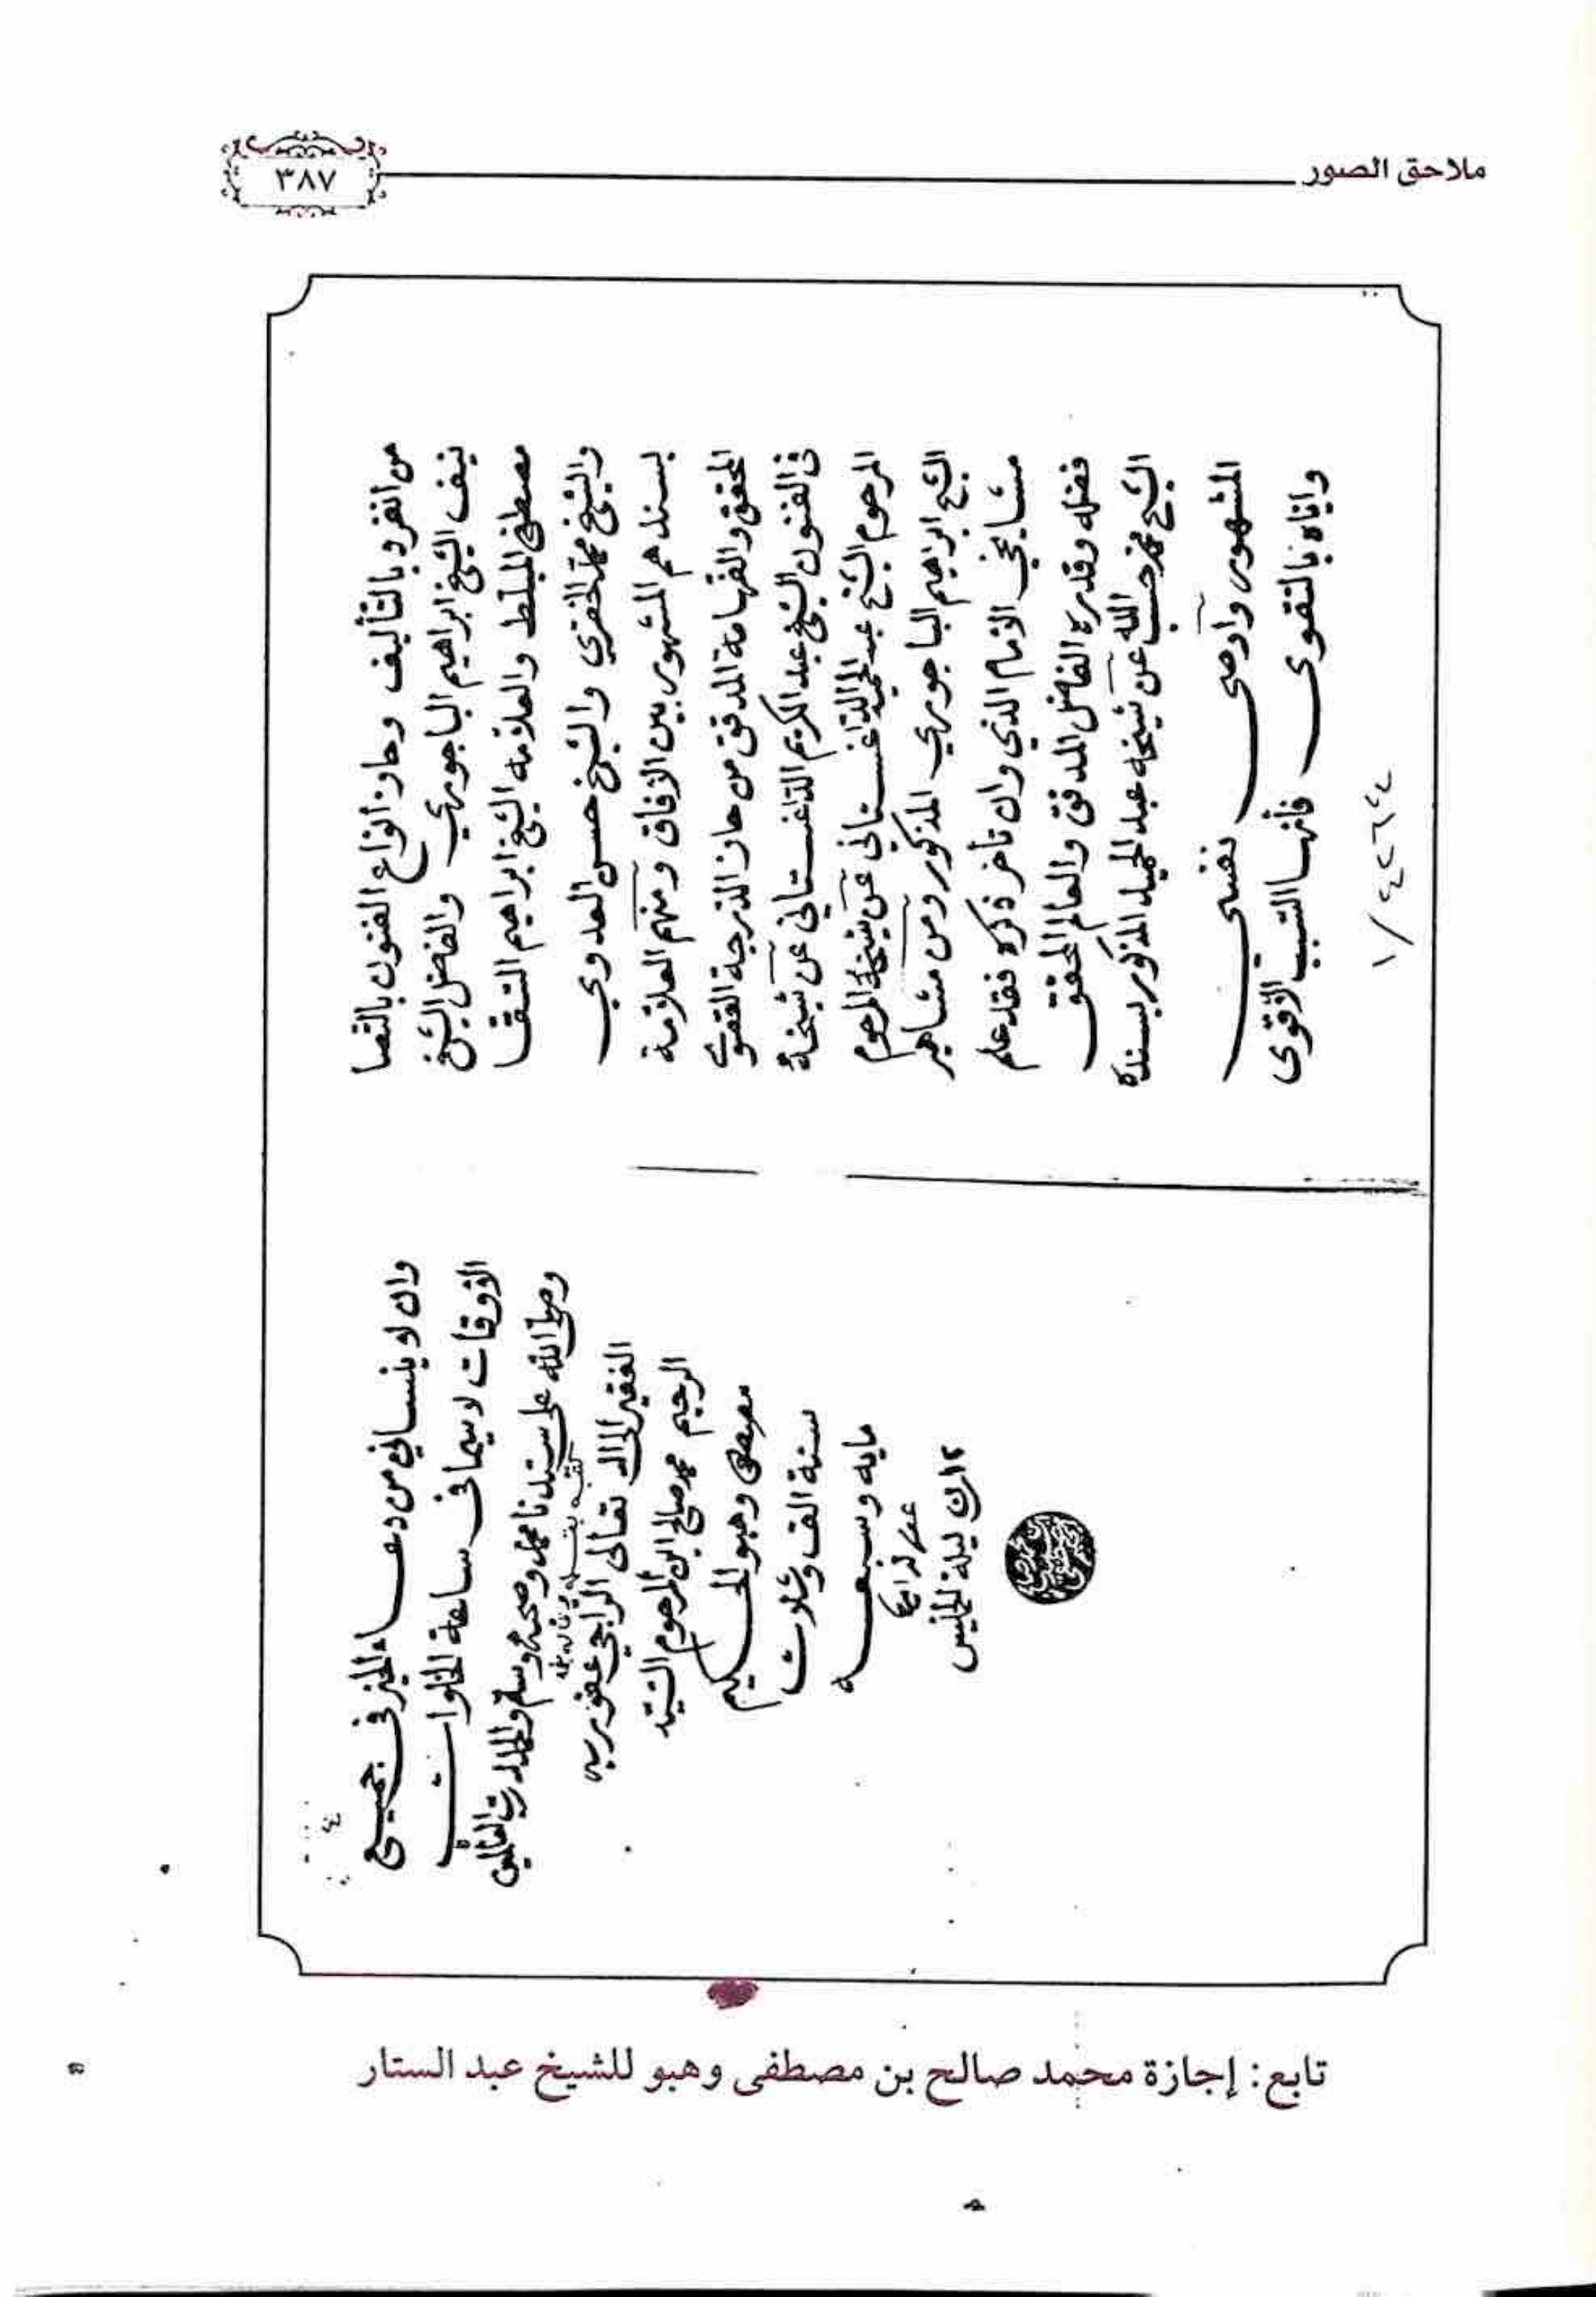 ملاحق الصور
٣٨٧
من انفرد بالتأليف وحاز انواع الفنون بالتصا
نيف الشيخ ابراهيم الباجوري والفاضل الشيخ
مصطفى المبلط والعلامه الشيخ ابراهيم السقا
والشيخ محمد الخضري والشيخ حسن العدوي
بسندهم المشهور بين الافاق ومنهم العلامة
المحقق والفهامة المدقق من حاز الدرجة القصوى
في الفنون الشيخ عبد الكريم الداغستاني عن شيخه
المرحوم الشيخ عبد الحميد الداغستاني عن شيخه المرحوم
الشيخ ابراهيم الباجوري المذكور ومن مشاهير
مشايخي الامام الذي وان تأخر ذكره فقد علم
فضله وقدره الفاضل المدقق والعالم المحقق
الشيخ محمد حسب الله عن شيخه عبد الحميد المذكور بسنده
المشهور وأوصى نفسي
واياه بالتقوى فانها السبب الاقوى
وان لا ينساني من دعاء الخير في جميع
الاوقات لا سيما في ساعة الخلوات
وصلى الله على سيدنا محمد وصحبه وسلم والحمد لله رب العالمين
الفقير الى الله تعالى الراجي عفو ربه
الرحيم محمد صالح ابن المرحوم السيد
مصطفى وهبو الحكيم
سنة الف وثلاث
مايه وسبعه
عشر
ليلة الخميس
تابع: إجازة محمد صالح بن مصطفى وهبو للشيخ عبد الستار